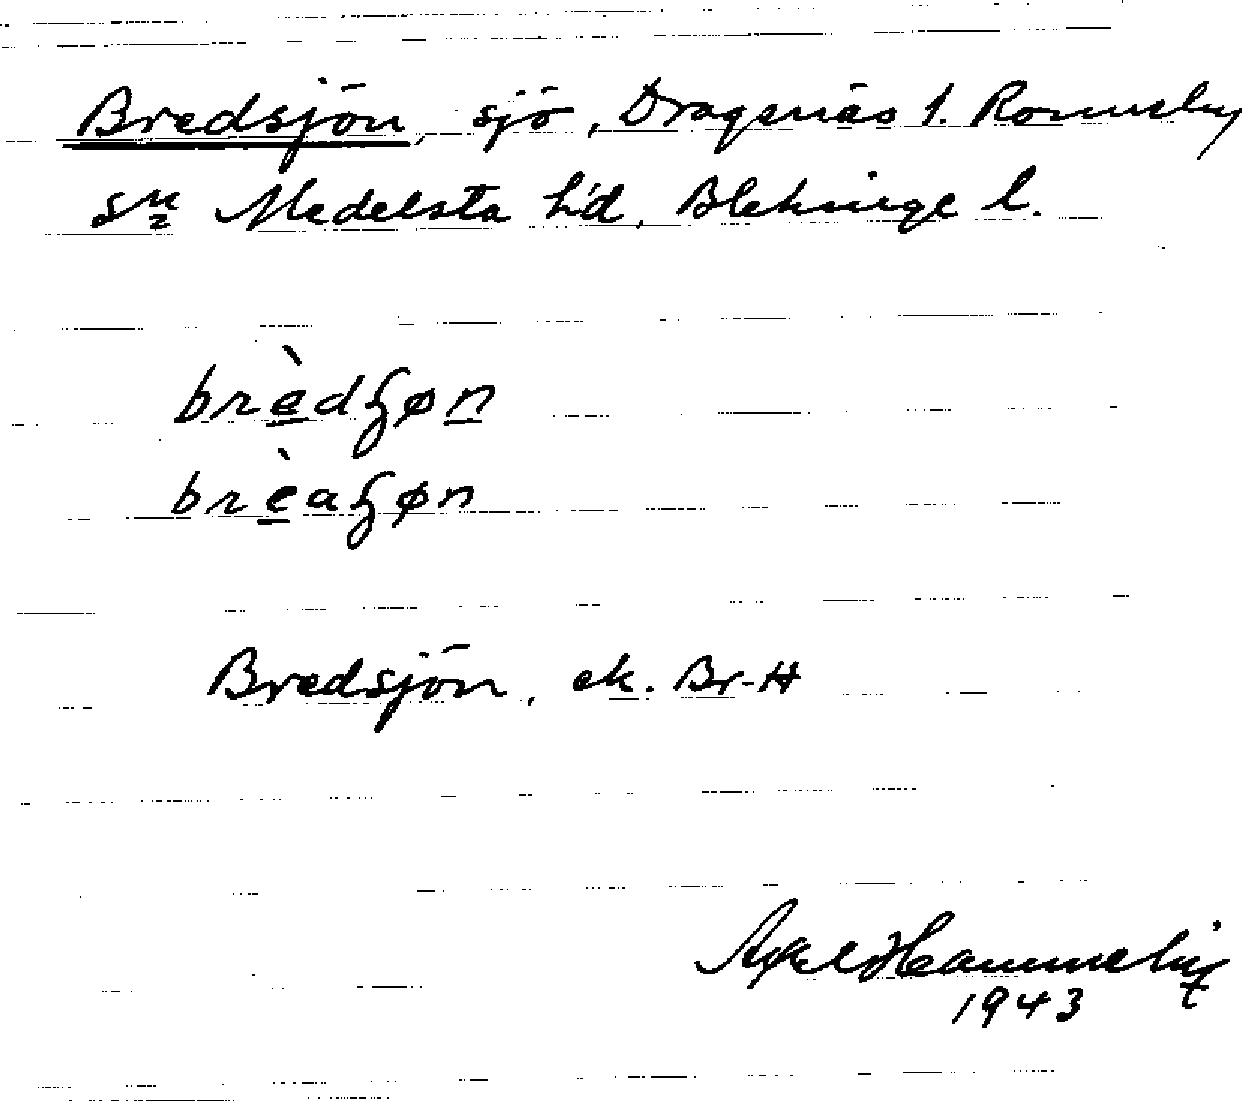 Bredsjön, sjö, Dragenäs f. Ronneby
sn Medelsta hd, Blekinge l.
brèdʃøn
brèaʃøn
Bredsjön, ek. Br-H
Axel
1943